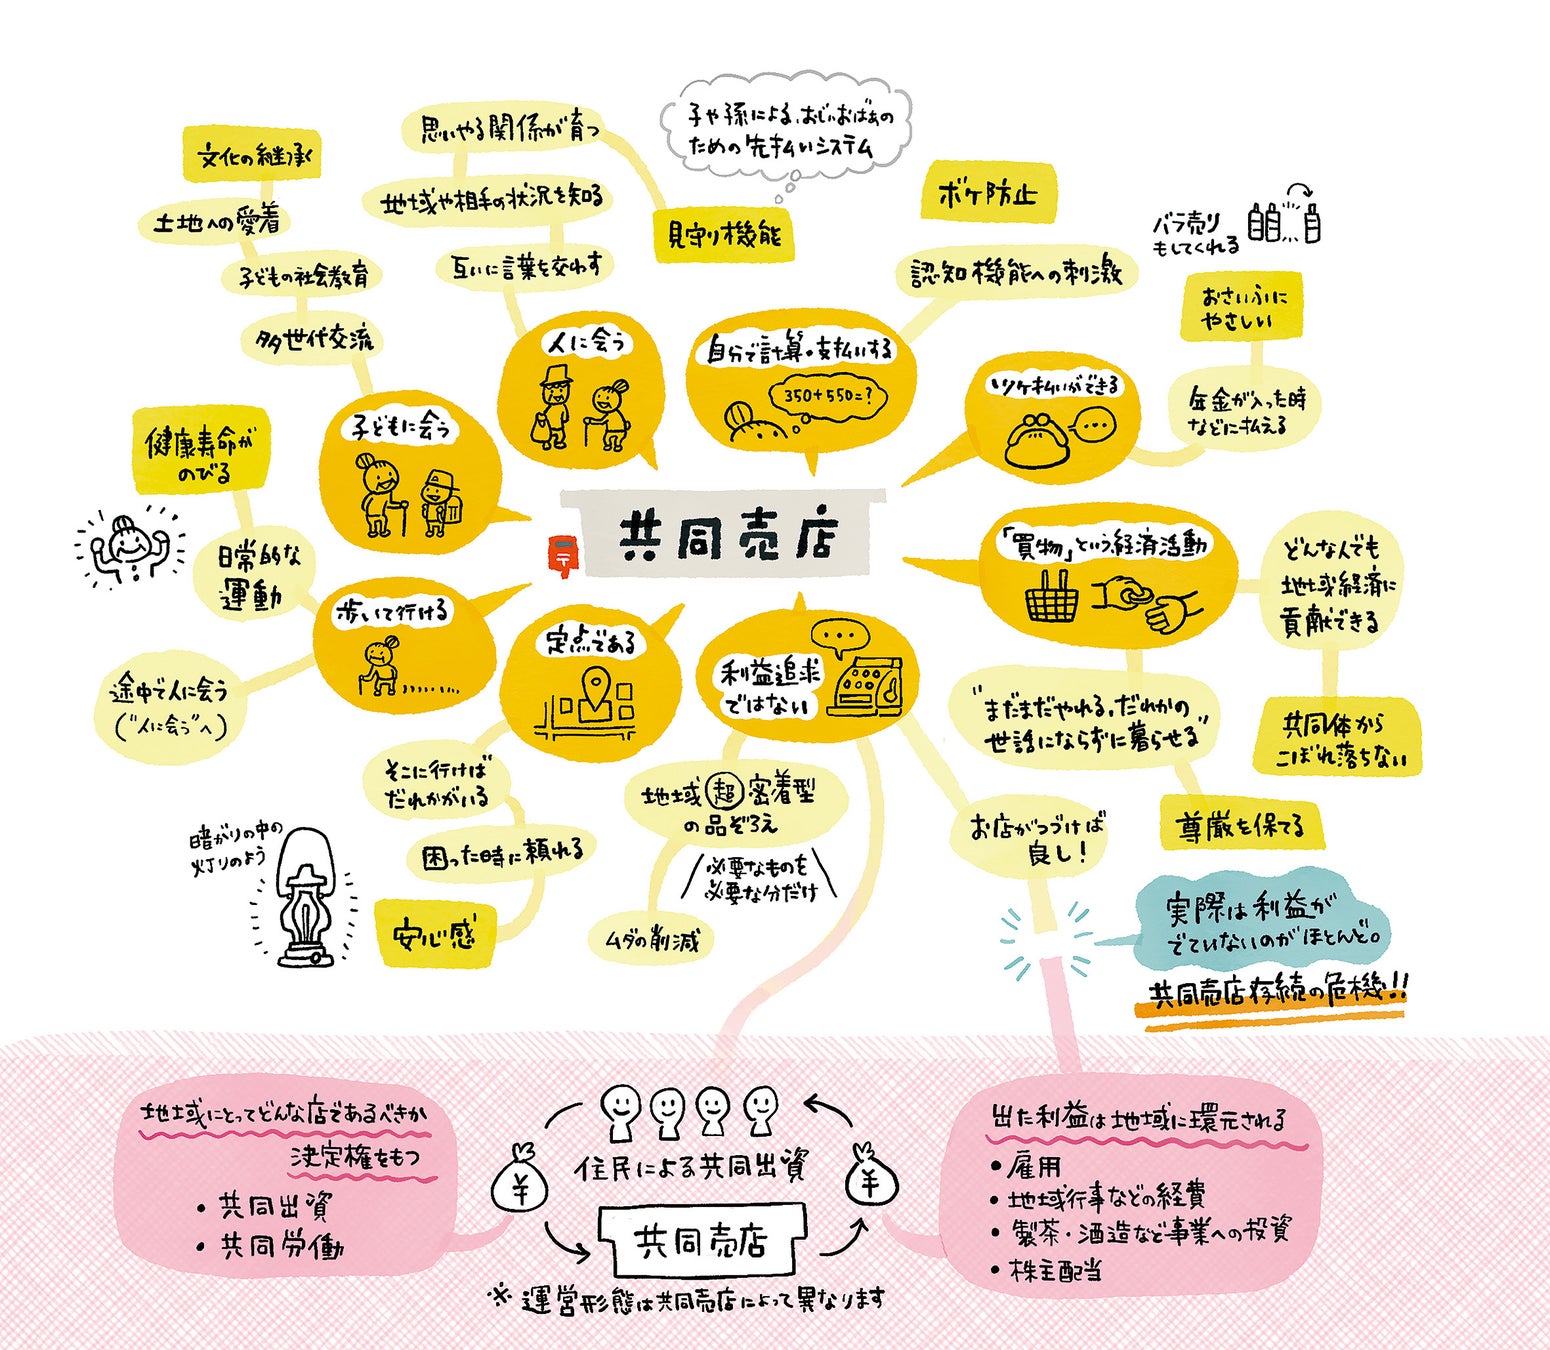 共同売店
〒
人に会う
互いに言葉を交わす
地域や相手の状況を知る
思いやる関係が育つ
見守り機能
子や孫による、おじぃおばぁの
ための先払いシステム
自分で計算・支払いする
350+550=?
認知機能への刺激
ボケ防止
ツケ払いができる
年金が入った時
などに払える
おさいふに
やさしい
バラ売り
もしてくれる
「買物」という経済活動
どんな人でも
地域経済に
貢献できる
共同体から
こぼれ落ちない
"まだまだやれる、だれかの
世話にならずに暮らせる"
尊厳を保てる
利益追求
ではない
地域超密着型
の品ぞろえ
必要なものを
必要な分だけ
ムダの削減
お店がつづけば
良し!
実際は利益が
でていないのがほとんど。
共同売店存続の危機!!
定点である
そこに行けば
だれかがいる
困った時に頼れる
安心感
暗がりの中の
灯りのよう
歩いて行ける
日常的な
運動
健康寿命が
のびる
途中で人に会う
("人に会う"へ)
子どもに会う
多世代交流
子どもの社会教育
土地への愛着
文化の継承
地域にとってどんな店であるべきか
決定権をもつ
・共同出資
・共同労働
住民による共同出資
¥
¥
共同売店
※運営形態は共同売店によって異なります
出た利益は地域に還元される
・雇用
・地域行事などの経費
・製茶・酒造など事業への投資
・株主配当